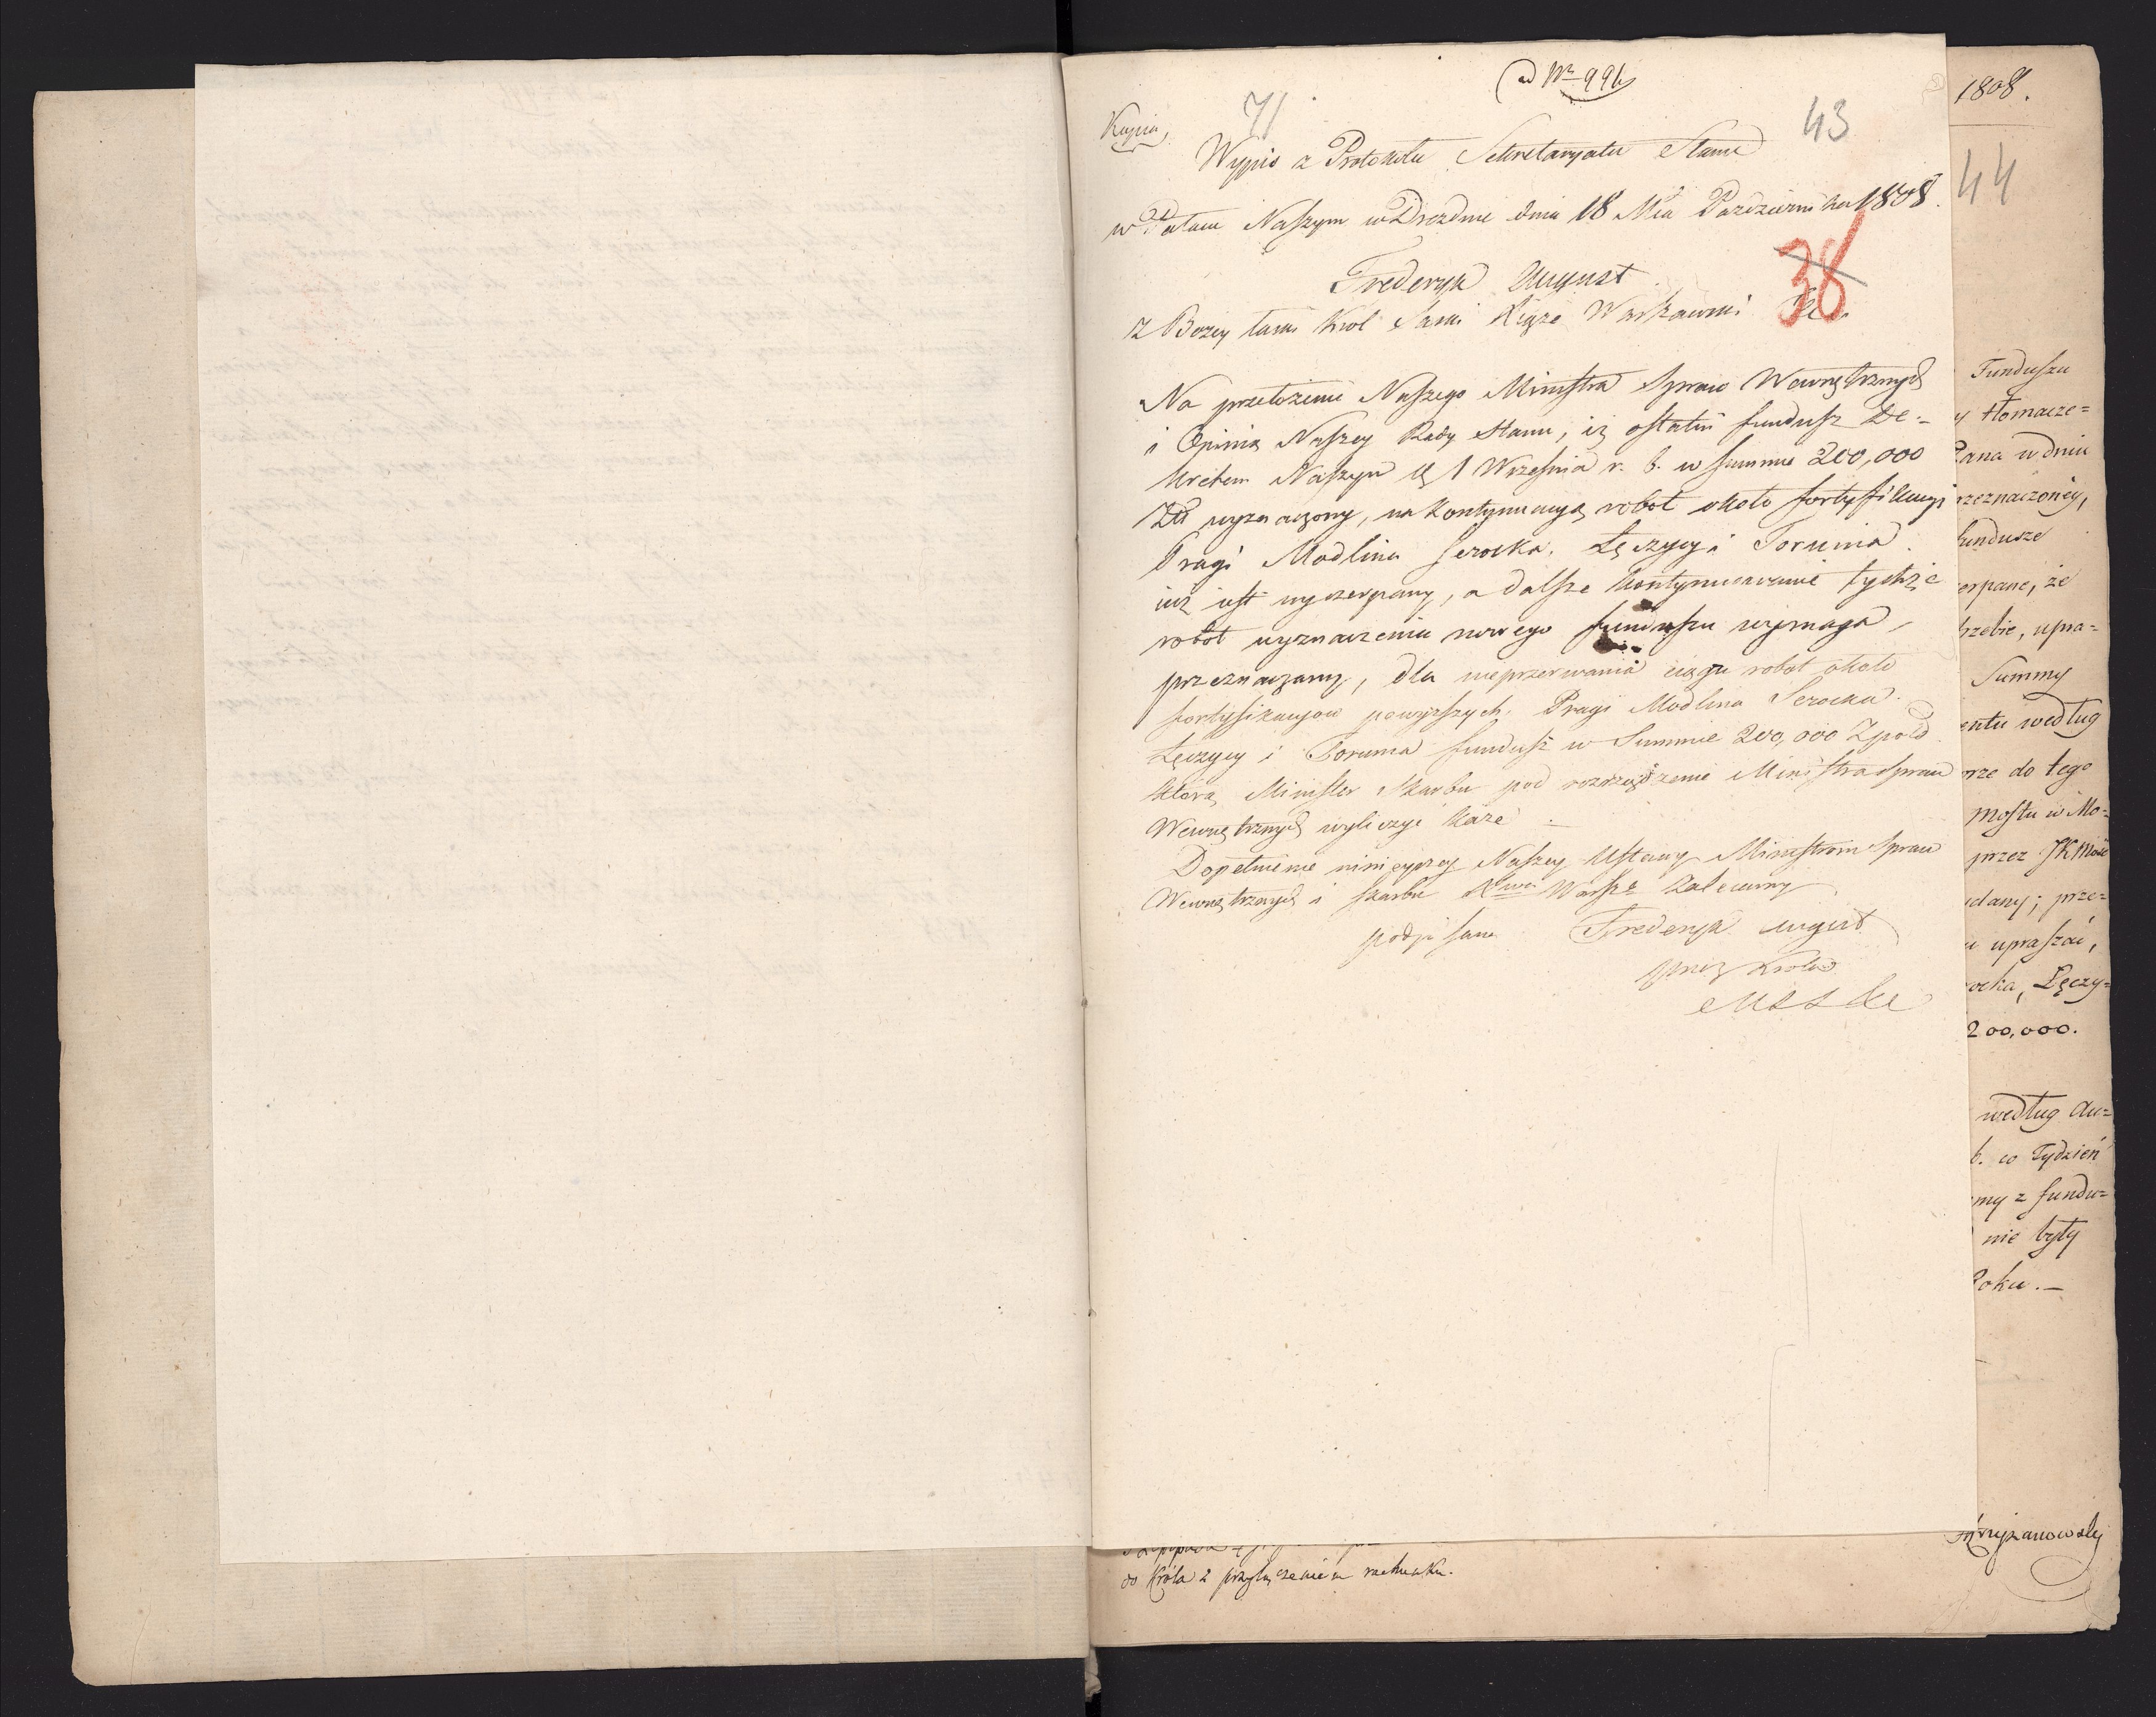 ad Nr 996
Kopia,
71
43
Wypis z Protokołu Sekretaryatu Stanu
w Pałacu Naszym w Dreznie dnia 18 Mca Pazdziernika 1808.
38
Frederyk August
z Bozey łaski Krol Saski Xiąze Warszawski &c.
Na przełożenie Naszego Ministra Spraw Wewnętrznych
i Opinią Naszey Rady Stanu, iż ostatni fundusz De-
kretem Naszym 1 Września r. b. w summie 200,000
Złł wyznaczony, na kontynuacyą robot około fortyfikacyi
Pragi Modlina Serocka, Łęczycy i Torunia
iuż iest wyczerpany, a dalsze kontynuowanie tychże
robot wyznaczenia nowego funduszu wymaga,
przeznaczamy, dla nieprzerwania ciągu robot około
fortyfikacyow powyższych, Pragi Modlina Serocka
Łęczycy i Torunia fundusz w Summie 200,000 Zpold
ktorą Minister Skarbu pod rozrządzenie Ministra Spraw
Wewnętrznych wyliczyć każe.
Dopełnienie ninieyszey Naszey Ustawy Ministrom Spraw
Wewnętrznych i Skarbu Xtwa Warszo zalecamy
podpisano Frederyk August
przez Krola
1808.
44
Funduszu
y tłomacze=
Pana w dniu
rzeznaczoney,
fundusze
erpane, że
trzebie, upra=
Summy
entu według
orze do tego
mostu w Mo=
przez JKMość
dany; prze=
upraszać,
ocka, Łęczy=
200,000.
według au=
b. co Tydzień
my z fundu=
nie były
Roku.—
Krzyżanowski
do Króla z przyłączeniem rachunku.